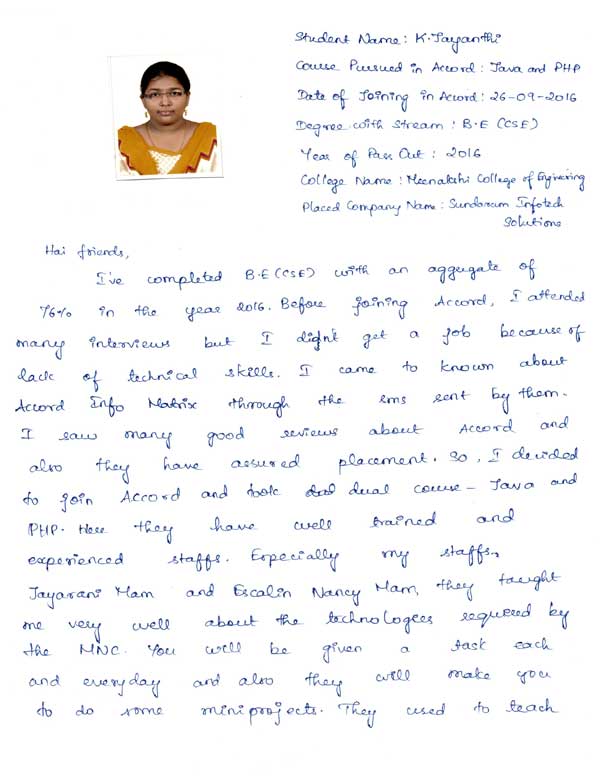 Student Name: K. Jayanthi
Course Pursued in Accord: Java and PHP
Date of Joining in Accord: 26-09-2016
Degree with Stream: B.E (CSE)
Year of Pass Out: 2016
College Name: Meenakshi College of Engineering
Placed Company Name: Sundaram Infotech
Solutions
Hai friends,
I've completed B.E (CSE) with an aggregate of
76% in the year 2016. Before joining Accord, I attended
many interviews but I didn't get a job because of
lack of technical skills. I came to known about
Accord Info Matrix through the sms sent by them.
I saw many good reviews about Accord and
also they have assured placement. So, I decided
to join Accord and took dual course - Java and
PHP. Here they have well trained and
experienced staffs. Especially my staffs,
Jayarani Mam and Escalin Nancy Mam, they taught
me very well about the technologies required by
the MNC. You will be given a task each
and everyday and also they will make you
to do some miniprojects. They used to teach